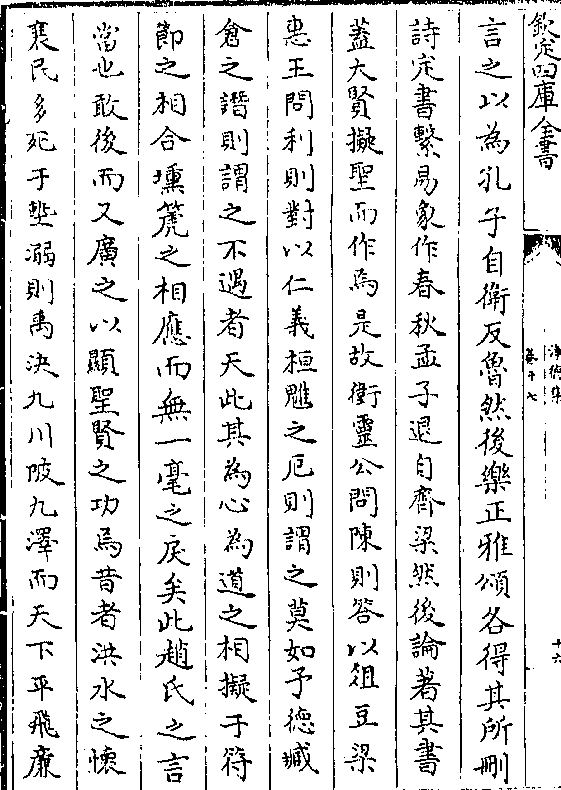 欽定四庫全書
淨德集
卷十七
十六
言之以為孔子自衛反魯然後樂正雅頌各得其所刪
詩定書繫易象作春秋孟子退自齊梁然後論著其書
蓋大賢擬聖而作焉是故衛靈公問陳則答以俎豆梁
惠王問利則對以仁義桓魋之厄則謂之莫如予德臧
倉之譖則謂之不遇者天此其為心為道之相擬于符
節之相合壎篪之相應而無一毫之戾矣此趙氏之言
當也敢後而又廣之以顯聖賢之功焉昔者洪水之懷
襄民多死于墊溺則禹決九川陂九澤而天下平飛廉